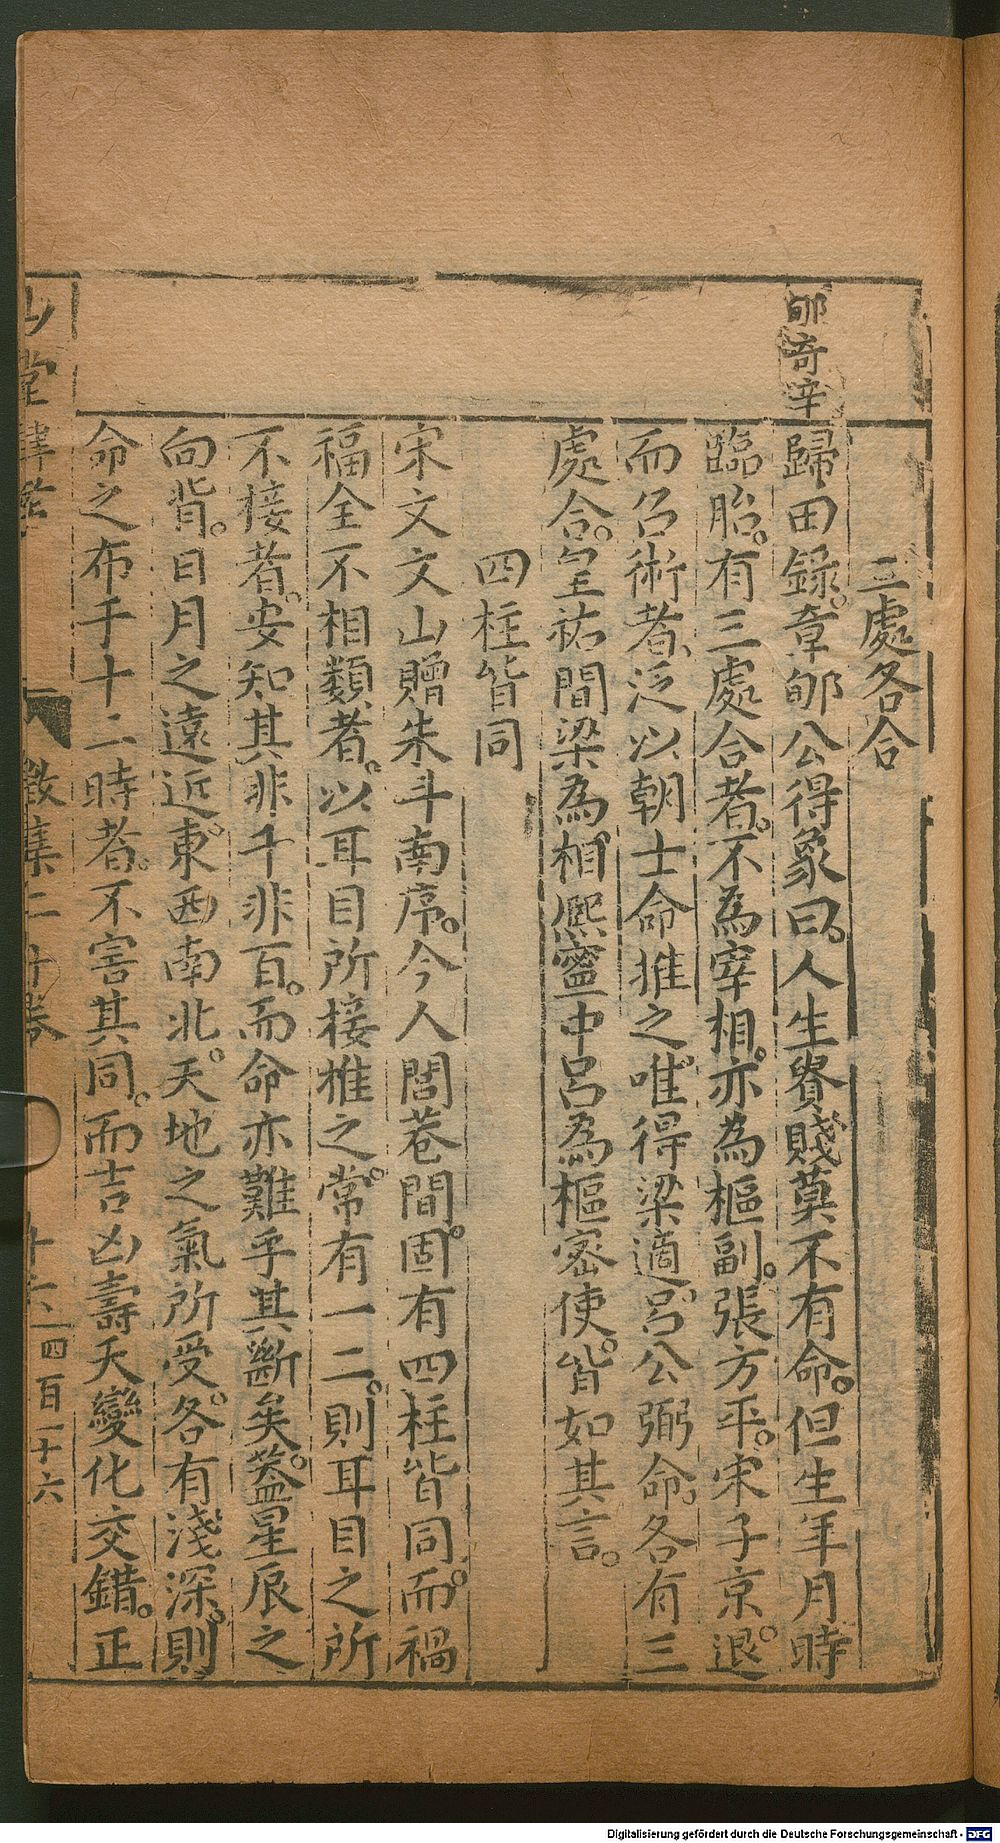 三處各合
郇奇
歸田錄。章郇公得象曰。人生貴賤莫不有命。但生年月時
臨胎。有三處合者。不為宰相。亦為樞副。張方平。宋子京退。
而召術者。泛以朝士命推之。唯得梁適。呂公弼命。各有三
處合。皇祐間梁為相。熙寧中呂為樞密使。皆如其言。
四柱皆同
宋文文山贈朱斗南序。今人閭巷間。固有四柱皆同。而禍
福全不相類者。以耳目所接推之。常有一二。則耳目之所
不接者。安知其非千非百。而命亦難乎其斷矣。蓋星辰之
向背。日月之遠近。東西南北。天地之氣所受。各有淺深。則
命之布于十二時者。不害其同。而吉凶壽夭變化交錯。正
山堂肆考
徵集二十卷
四百一十六
Digitalisierung gefördert durch die Deutsche Forschungsgemeinschaft - DFG